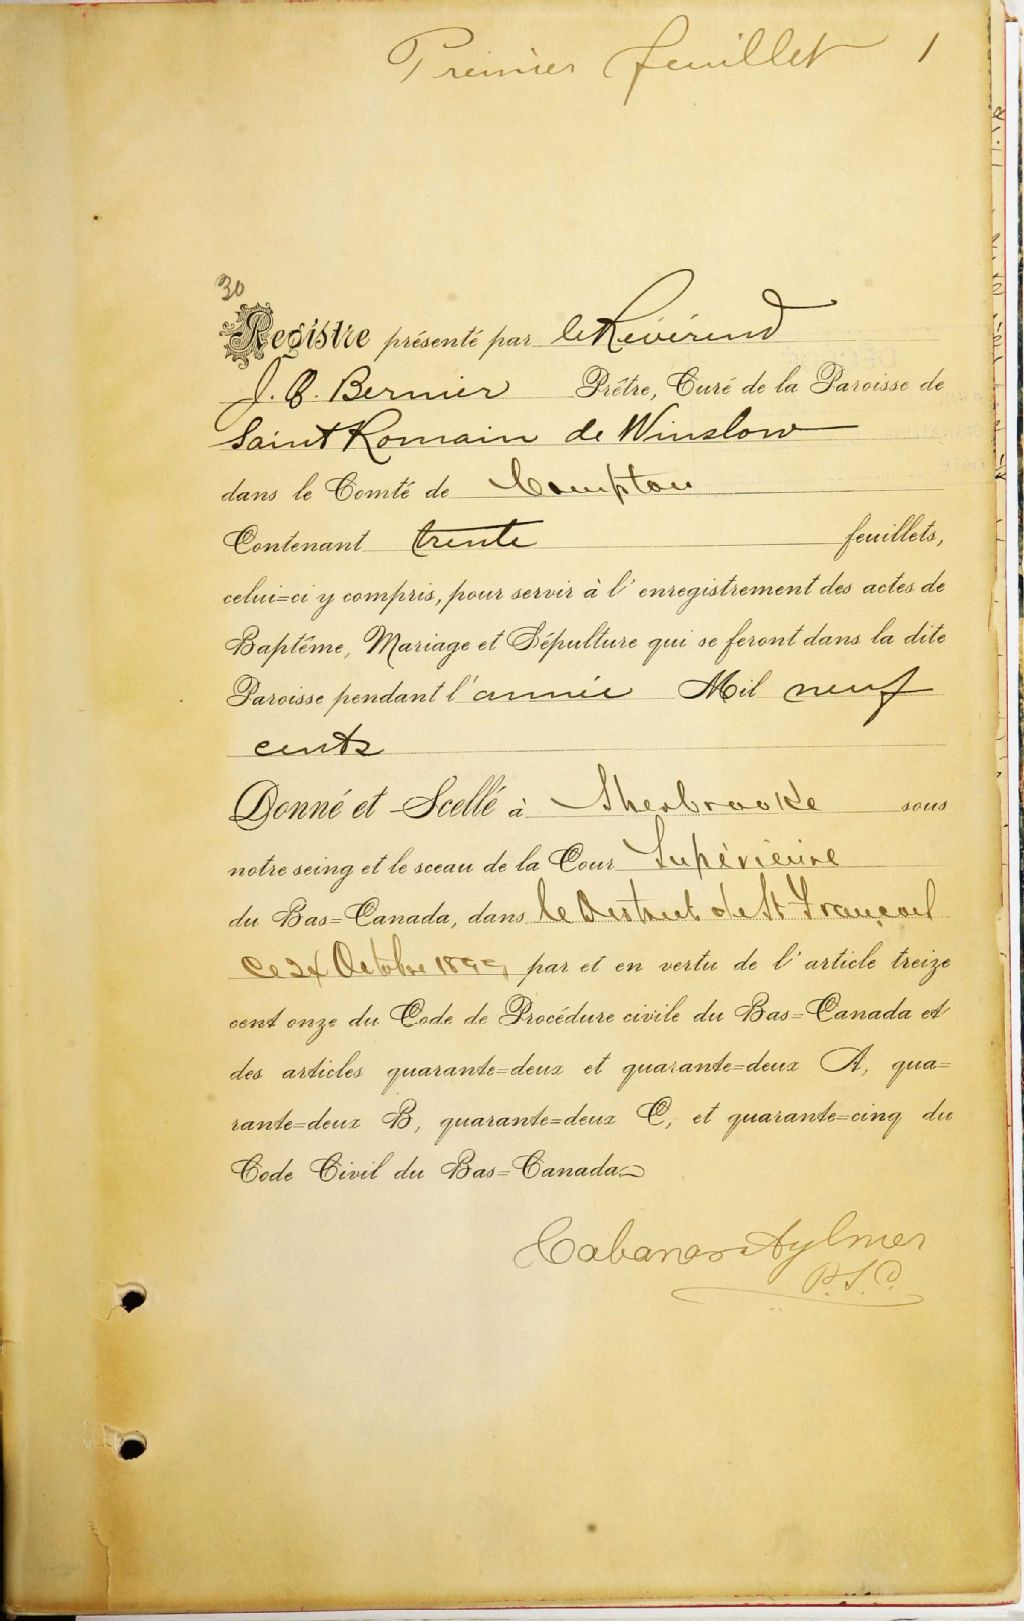 Premier feuillet 1
30
Registre présenté par le Révérend
J. B. Bernier Prêtre, Curé de la Paroisse de
Saint Romain de Winslow
dans le Comté de Compton
Contenant trente feuillets,
celui=ci y compris, pour servir à l'enregistrement des actes de
Baptême, Mariage et Sépulture qui se feront dans la dite
Paroisse pendant l'année Mil neuf
cents
Donné et Scellé à Sherbrooke sous
notre seing et le sceau de la Cour Supérieure
du Bas=Canada, dans le District de St François
Ce Octobre 1899, par et en vertu de l'article treize
cent onze du Code de Procédure civile du Bas=Canada et
des articles quarante=deux et quarante=deux A, qua=
rante=deux B, quarante=deux C, et quarante=cinq du
Code Civil du Bas=Canada
Cabana & Aylmer
P.S.C.